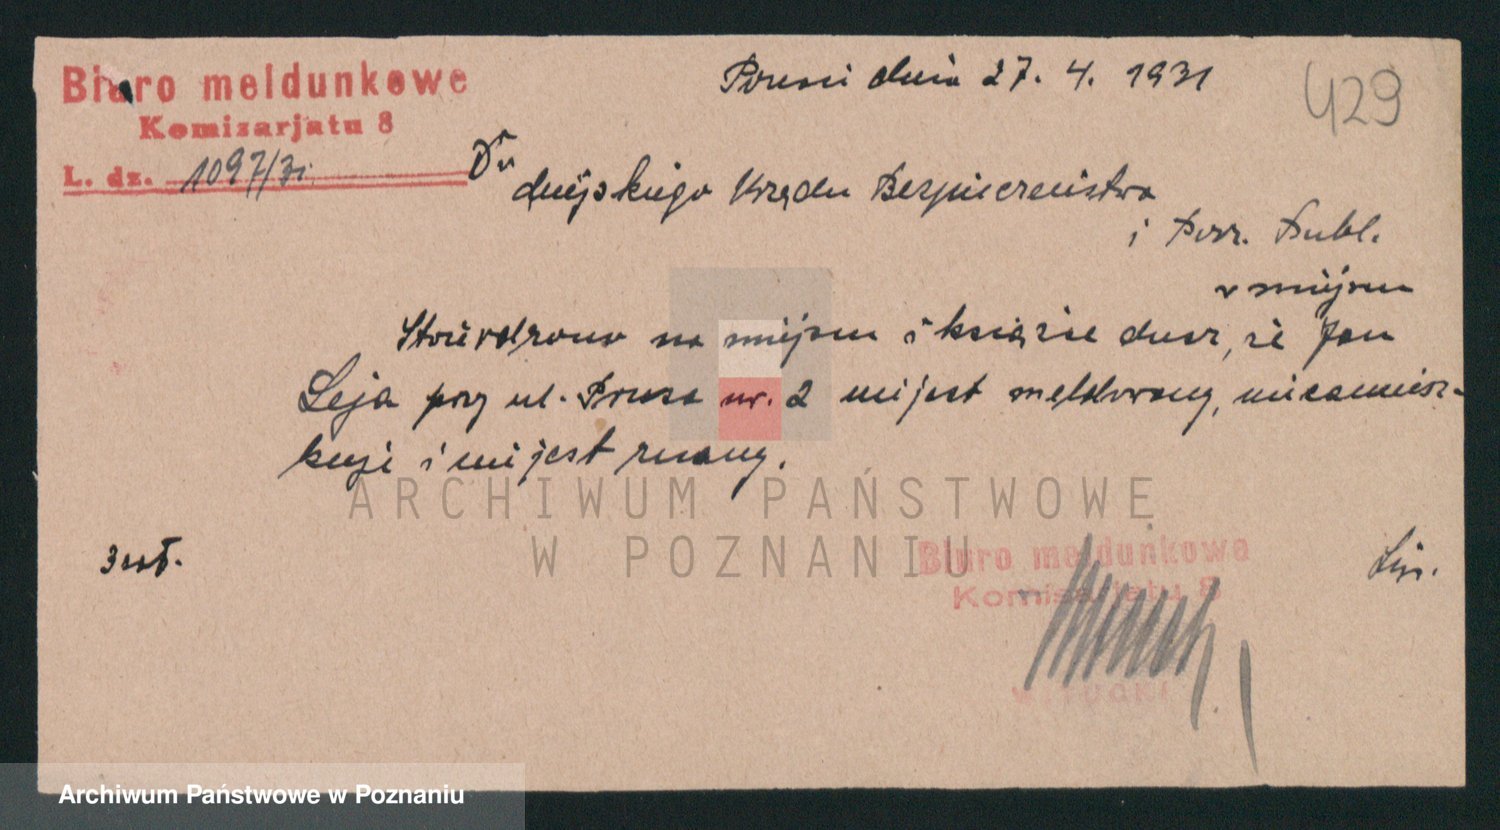 Biuro meldunkowe
Komisarjatu 8
L. dz. 1097/31.
dnia 27. 4. 1931
429
Do
Miejskiego Urzędu Bezpieczeństwa
i Porz. Publ.
w miejscu
Stwierdzono na miejscu i książce dusz, że Jan
Leja przy ul. Prusa nr. 2 nie jest meldowany, niezamiesz-
kuje i nie jest znany.
ARCHIWUM PAŃSTWOWE
W POZNANIU
Biuro meldunkowe
Komisarjatu 8
Archiwum Państwowe w Poznaniu